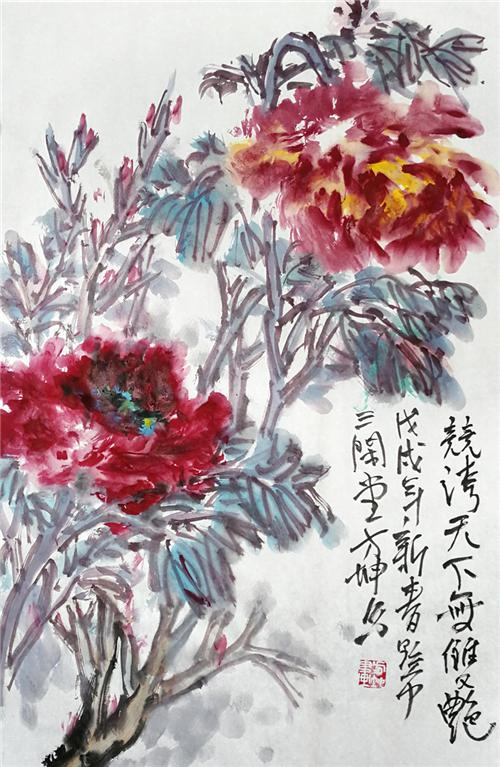 競誇天下無雙艷
戊戌年新春
三閑堂方坤